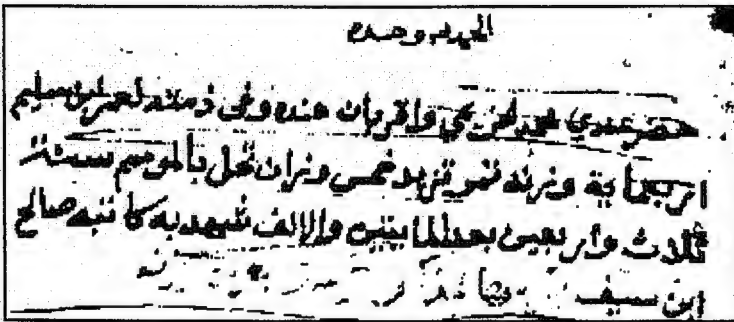 الحمد لله وحده
حضر عندي محمد لخريجي واقر بان عنده وفي ذمته لعمر ابن سليم
اربعماية وزنه تمر تزيد خمس وزان نحل بالموسم سنة
ثلاث واربعين بعد المايتين والالف شهد به كاتبه صالح
ابن سيف